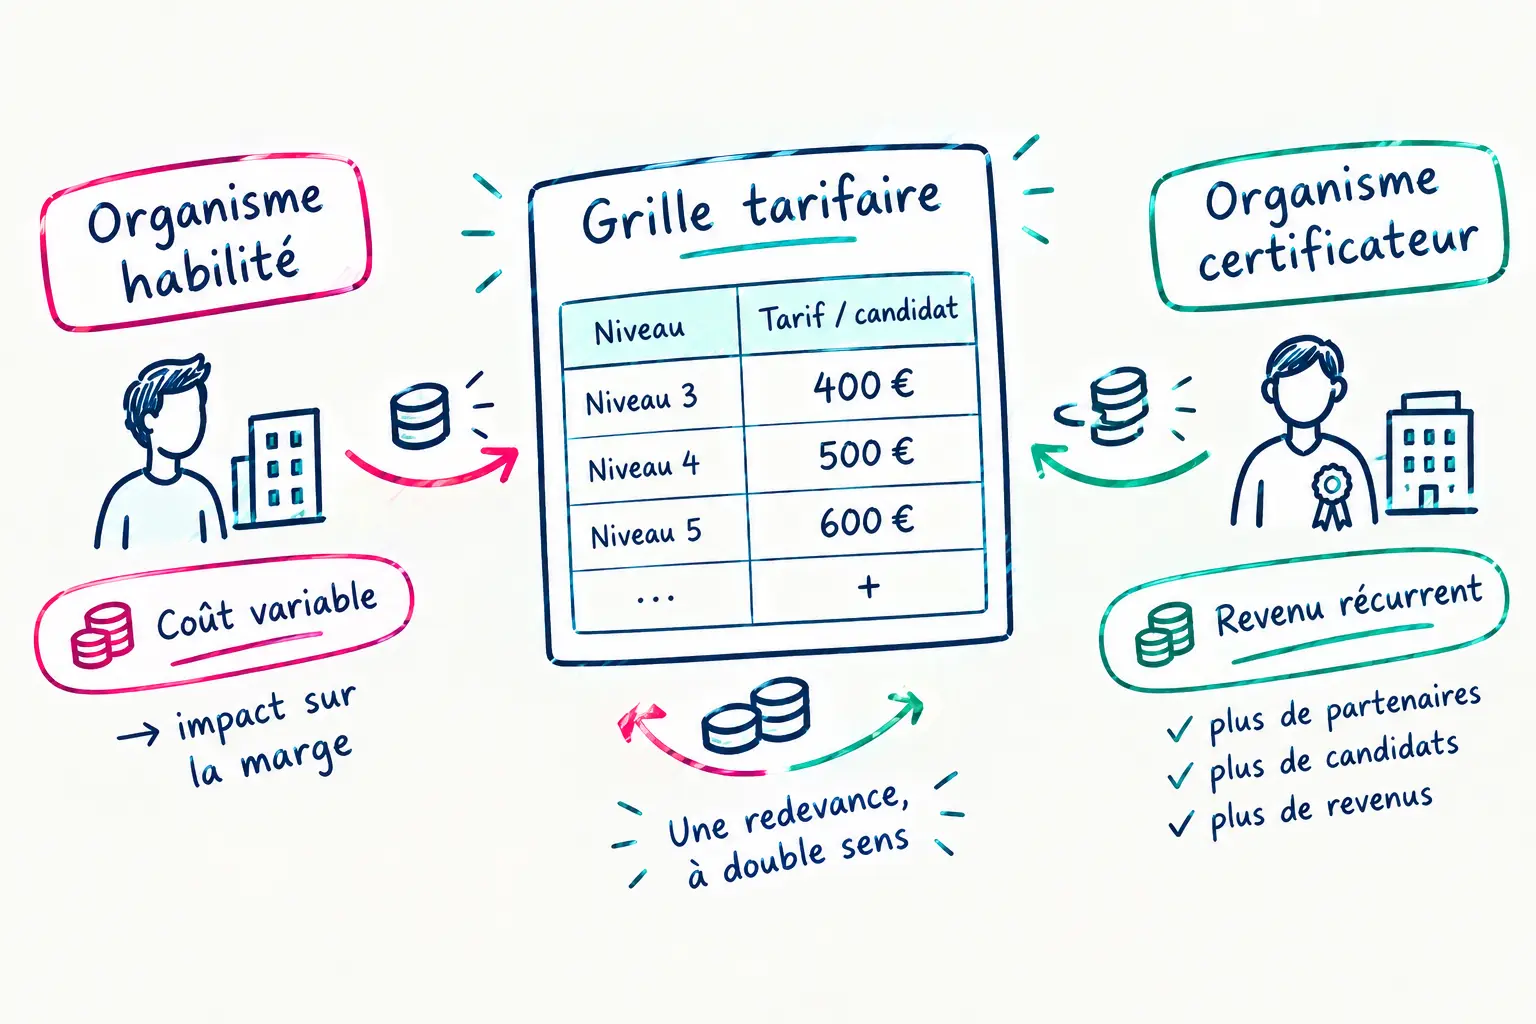 Organisme
habilité
Coût variable
→ impact sur
la marge
Grille tarifaire
Niveau Tarif / candidat
Niveau 3 400 €
Niveau 4 500 €
Niveau 5 600 €
... +
Une redevance,
à double sens
Organisme
certificateur
Revenu récurrent
✓ plus de partenaires
✓ plus de candidats
✓ plus de revenus